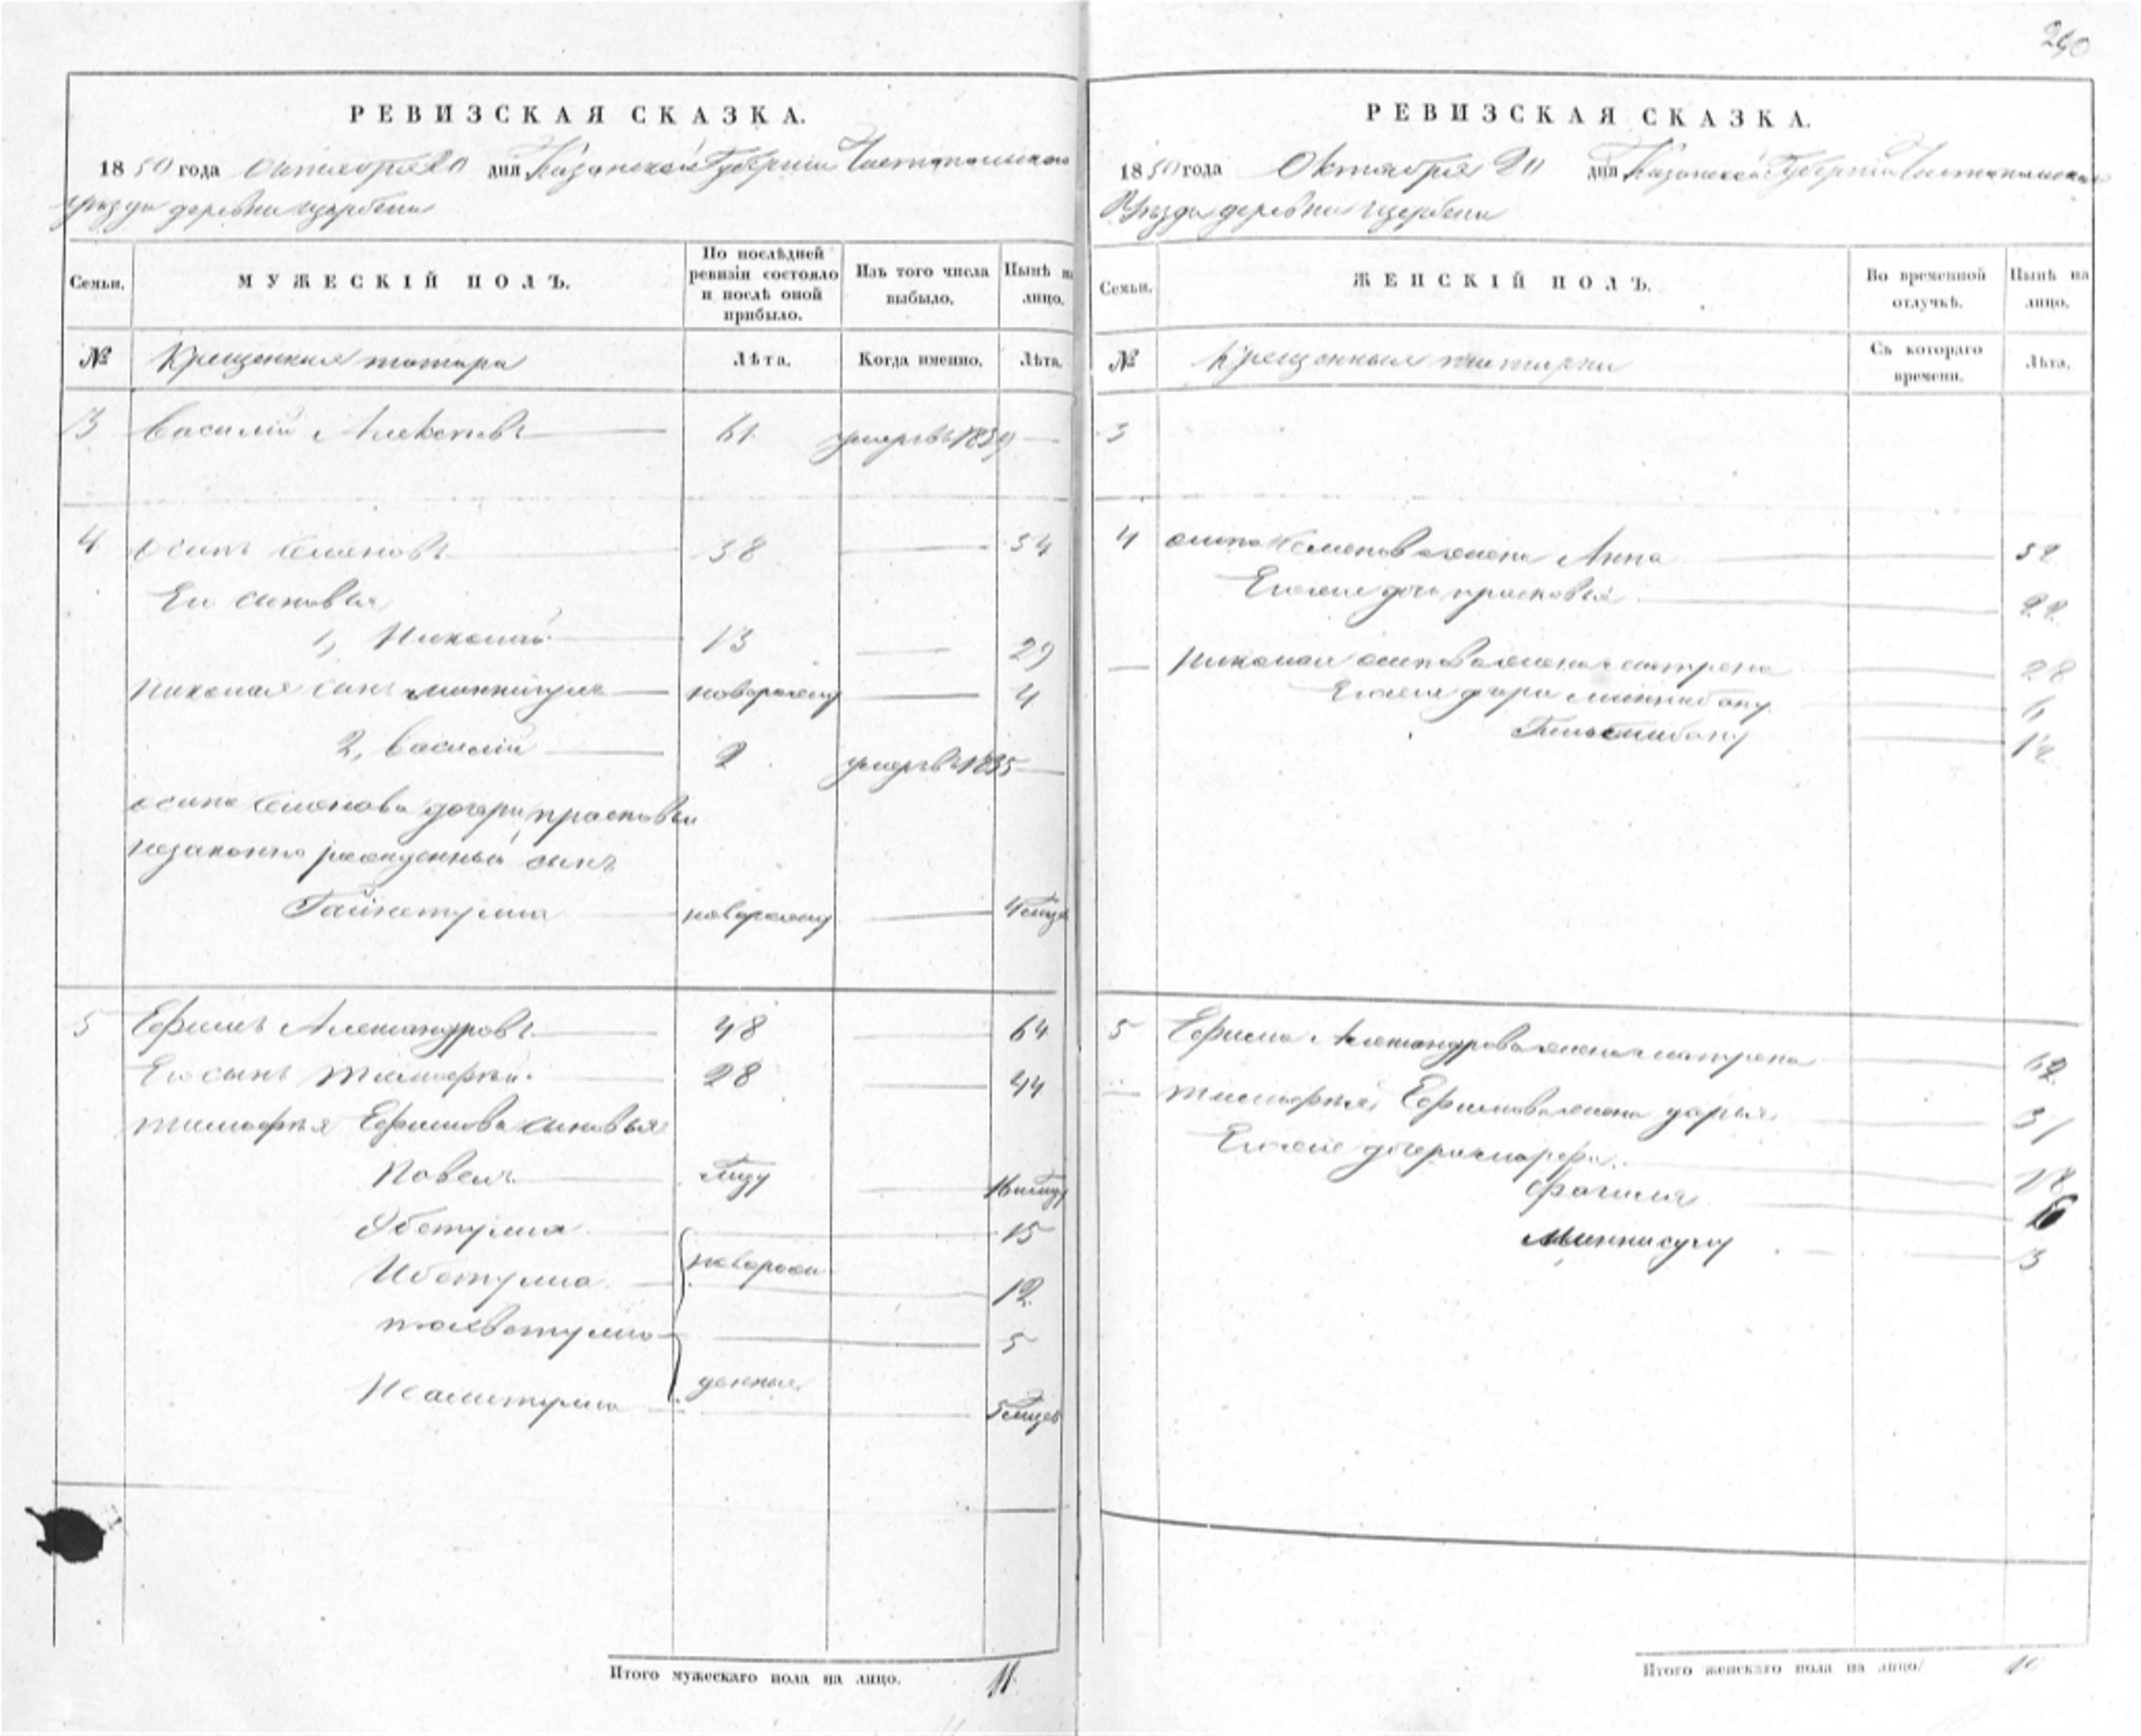 290
РЕВИЗСКАЯ СКАЗКА.
1850 года Октября 20 дня Казанской Губернии Чистопольскаго
уезда деревни
Семьи.
МУЖЕСКІЙ ПОЛЪ.
По послѣдней ревизіи состояло и послѣ оной прибыло.
Изъ того числа выбыло.
Нынѣ на лицо.
№ Крещенные татара Лѣта. Когда именно. Лѣта.
3 Василій Алексѣевъ 61 умеръ въ 1839
4 Осипъ Семеновъ 38 54
Ево сыновья
1, Николай 13 29
Николая сынъ новорожд 4
2, Василій 2 умеръ въ 1835
осипа Семенова дочери прасковьи
незаконно рожденный сынъ
Гайнетулла новорожд 4 мцов
5 Ефимъ Александровъ 48 64
Ево сынъ Тимофей 28 44
тимофея Ефимова сыновья
Павелъ 16
15
новорож
12
5
денные
5 мцов
Итого мужескаго пола на лицо. 11
РЕВИЗСКАЯ СКАЗКА.
1850 года Октября 20 дня Казанской Губерніи Чистопольскаго
Уезда деревни
Семьи.
ЖЕНСКІЙ ПОЛЪ.
Во временной отлучкѣ.
Нынѣ на лицо.
№ Крещонные татарки Съ котораго времени. Лѣта.
3
4 осипа Семенова жена Анна 52
Ево же дочь прасковья 22
Николая осипова жена матрена 28
Ево же дчри 6
12
5 Ефима Александрова жена матрена 62
тимофея Ефимова жена дарья 31
Ево же дочери марфа 18
3
Итого женскаго пола на лицо 10